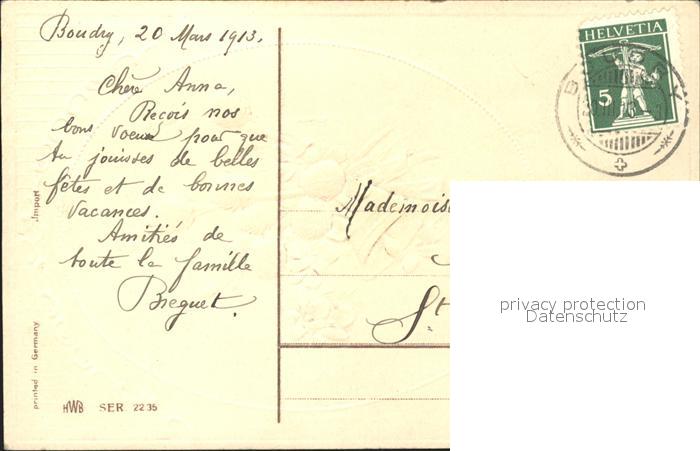 Boudry, 20 Mars 1913.
Chère Anna,
Reçois nos
bons voeux pour que
tu jouisses de belles
fêtes et de bonnes
vacances.
Amitiés de
toute la famille
Breguet.
HELVETIA
5
BOUDRY
Mademois
St
privacy protection
Datenschutz
Import
printed in Germany
HWB SER. 2235